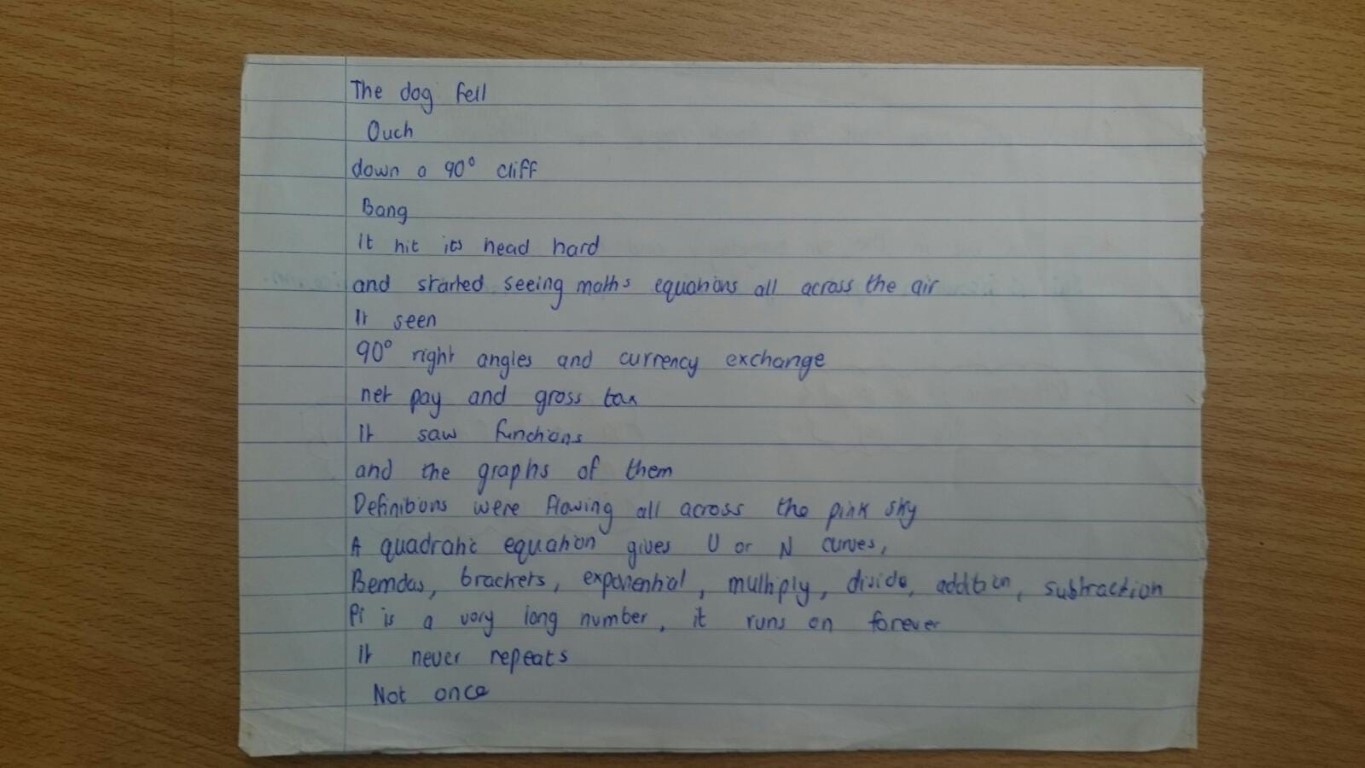 The dog fell
Ouch
down a 90° cliff
Bang
It hit its head hard
and started seeing maths equations all across the air
It seen
90° right angles and currency exchange
net pay and gross tax
It saw functions
and the graphs of them
Definitions were flowing all across the pink sky
A quadratic equation gives U or N curves,
Bemdas, brackets, exponential, multiply, divide, addition, subtraction
Pi is a very long number, it runs on forever
It never repeats
Not once